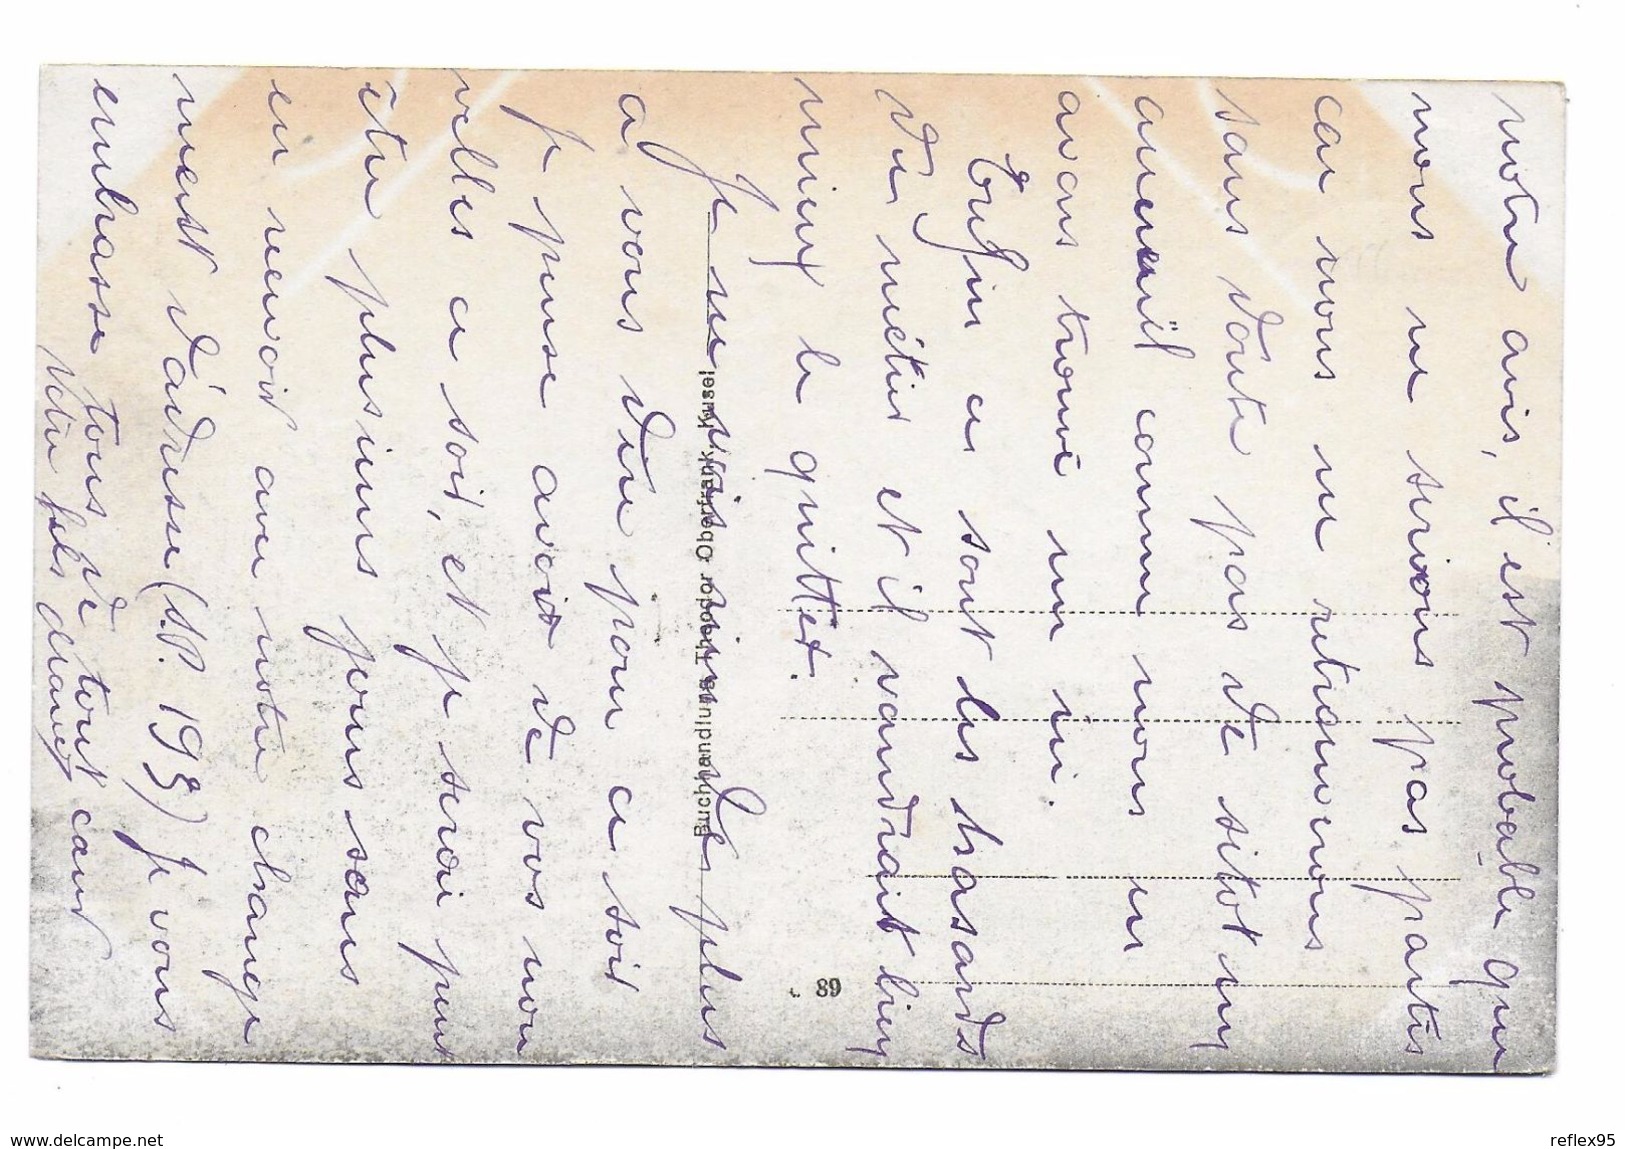 notre avis, il est probable que
nous ne serions pas partis
car nous ne retrouverons
sans doute pas de sitot un
acceuüil comme nous en
avons trouvé un ici.
Enfin ce sont les hasards
du métier et il vaudrait bien
mieux le quitter.
Je ne vois rien de plus
a vous dire pour ce soit
je pense avoir de vos nou
velles ce soit, et je serai peut
être plusieurs jours sans
en revevoir avec notre change
ment d'adresse (S.P. 198) je vous
embrasse tous de tout cœur
Votre fils
Buchhandlung Theodor Oberfrank, Kusel
89
www.delcampe.net
reflex95